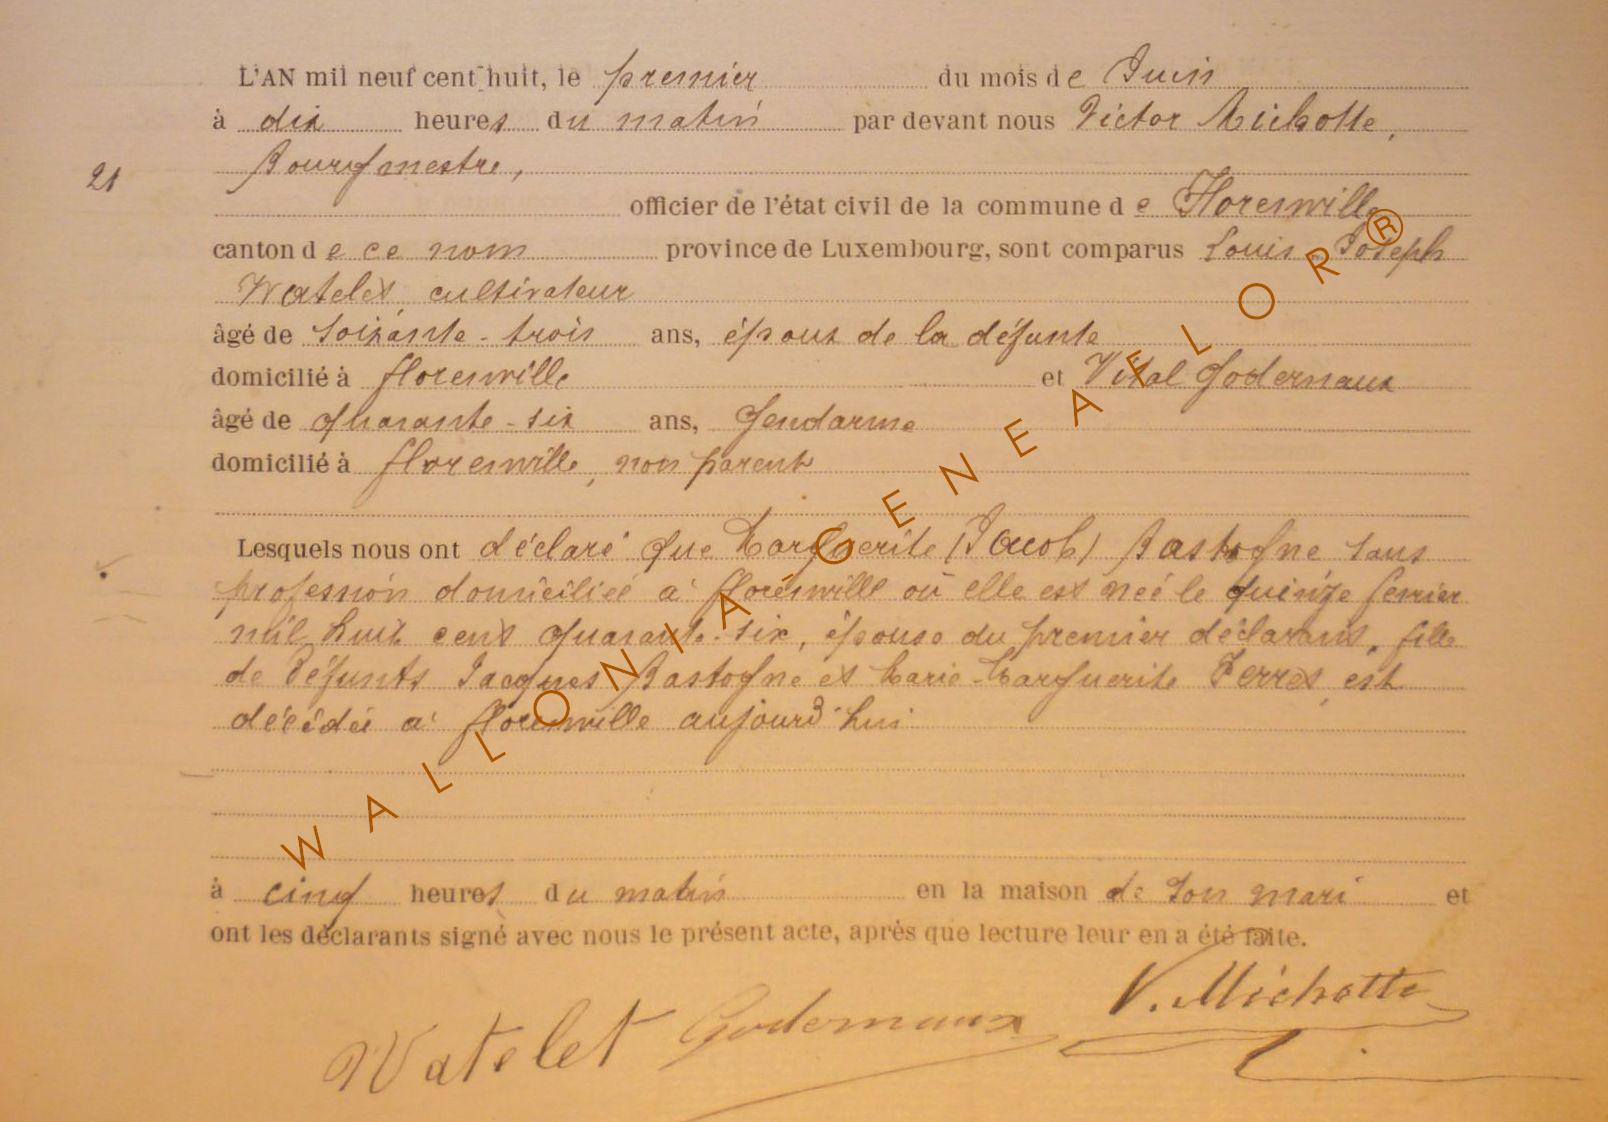 L'AN mil neuf cent huit, le premier du mois de Juin
à dix heures du matin par devant nous Victor Michotte,
Bourgmestre,
21
officier de l'état civil de la commune de Florenville
canton de ce nom province de Luxembourg, sont comparus Louis Joseph
Watelet, cultivateur
âgé de soixante-trois ans, époux de la défunte
domicilié à florenville et Vital Godernaux
âgé de quarante-six ans, Gendarme
domicilié à florenville, non parent
Lesquels nous ont déclaré que Marguerite (Jacob) Bastogne sans
profession domiciliée à florenville où elle est née le quinze février
mil huit cent quarante-six, épouse du premier déclarant, fille
de défunts Jacques Bastogne et Marie-Marguerite Ferret, est
décédée à florenville aujourd'hui
à cinq heures du matin en la maison de son mari et
ont les déclarants signé avec nous le présent acte, après que lecture leur en a été faite.
Watelet Godernaux V. Michotte
WALLONIA GENEAFLOR®